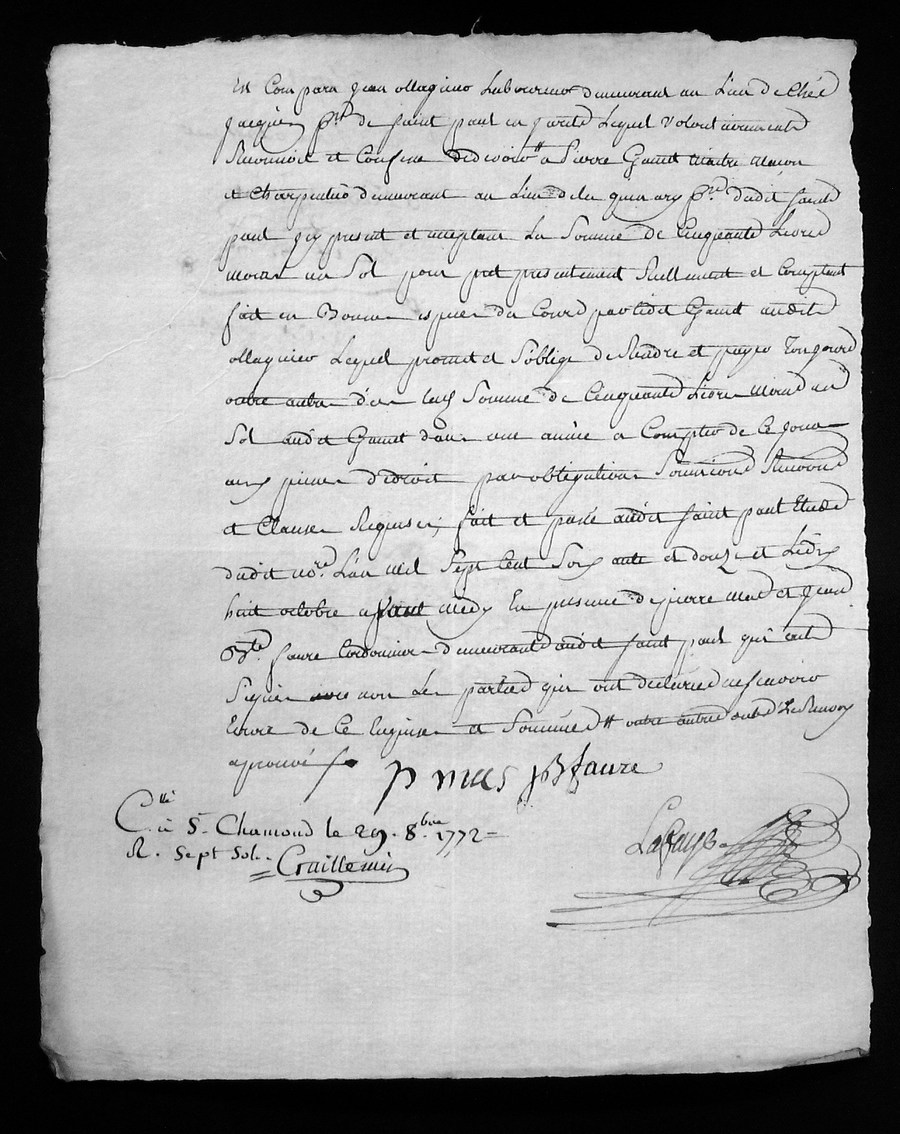 Est Comparu Jean ollagnier Laboureur demeurant au Lieu de Chés
Jacquien psse de saint paul en Jarêts Lequel volontairement
Reconnoit et Confesse dedevoir a pierre Gamet maitre maçon
et Charpentier demeurant au Lieu de psse dudit saint
paul Jcy present et acceptant La Somme de Cinquante Livres
moins un Sol pour pret presentement Reellement et Comptant
fait en Bonnes espèces du Cours par ledit Gamet audit
ollagnier Lequel promet et S'oblige de Rendre et payer
Somme de Cinquante Livres moins un
Sol audit Gamet dans une année a Compter de Ce jour
aux peines de droit par obligation Soumissions Renvond
et Clauses Requises, fait et passé audit saint paul Etude
dudit nore L'an mil Sept Cent Soixante et douze et Ledix
huit octobre avant midy En presence de pierre mas et Jean
Bte faure Cordonnier demeurants audit saint paul qui ont
Signé non Les parties qui ont déclarées ne scavoir
Ecrire de Ce Enquises et Sommées
aprouvé
p mas jB faure
C.llé à St Chamond le 29. 8.bre 1772 =
R. sept sol.